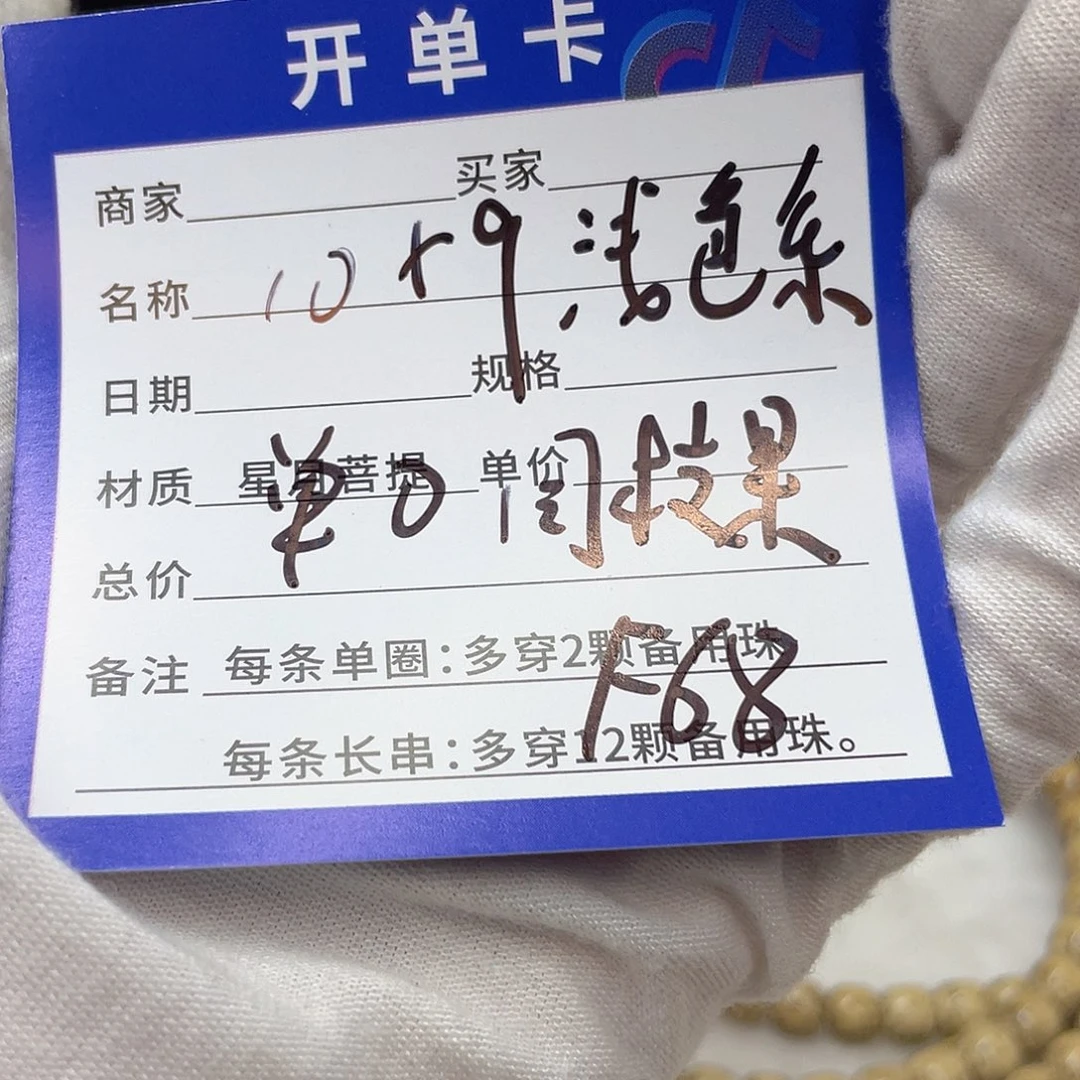 开单卡
商家 买家
名称 10+9 浅色系
日期 规格
材质 星月菩提 单价
单 0
总价
F68
备注 每条单圈：多穿2颗备用珠
每条长串：多穿12颗备用珠。